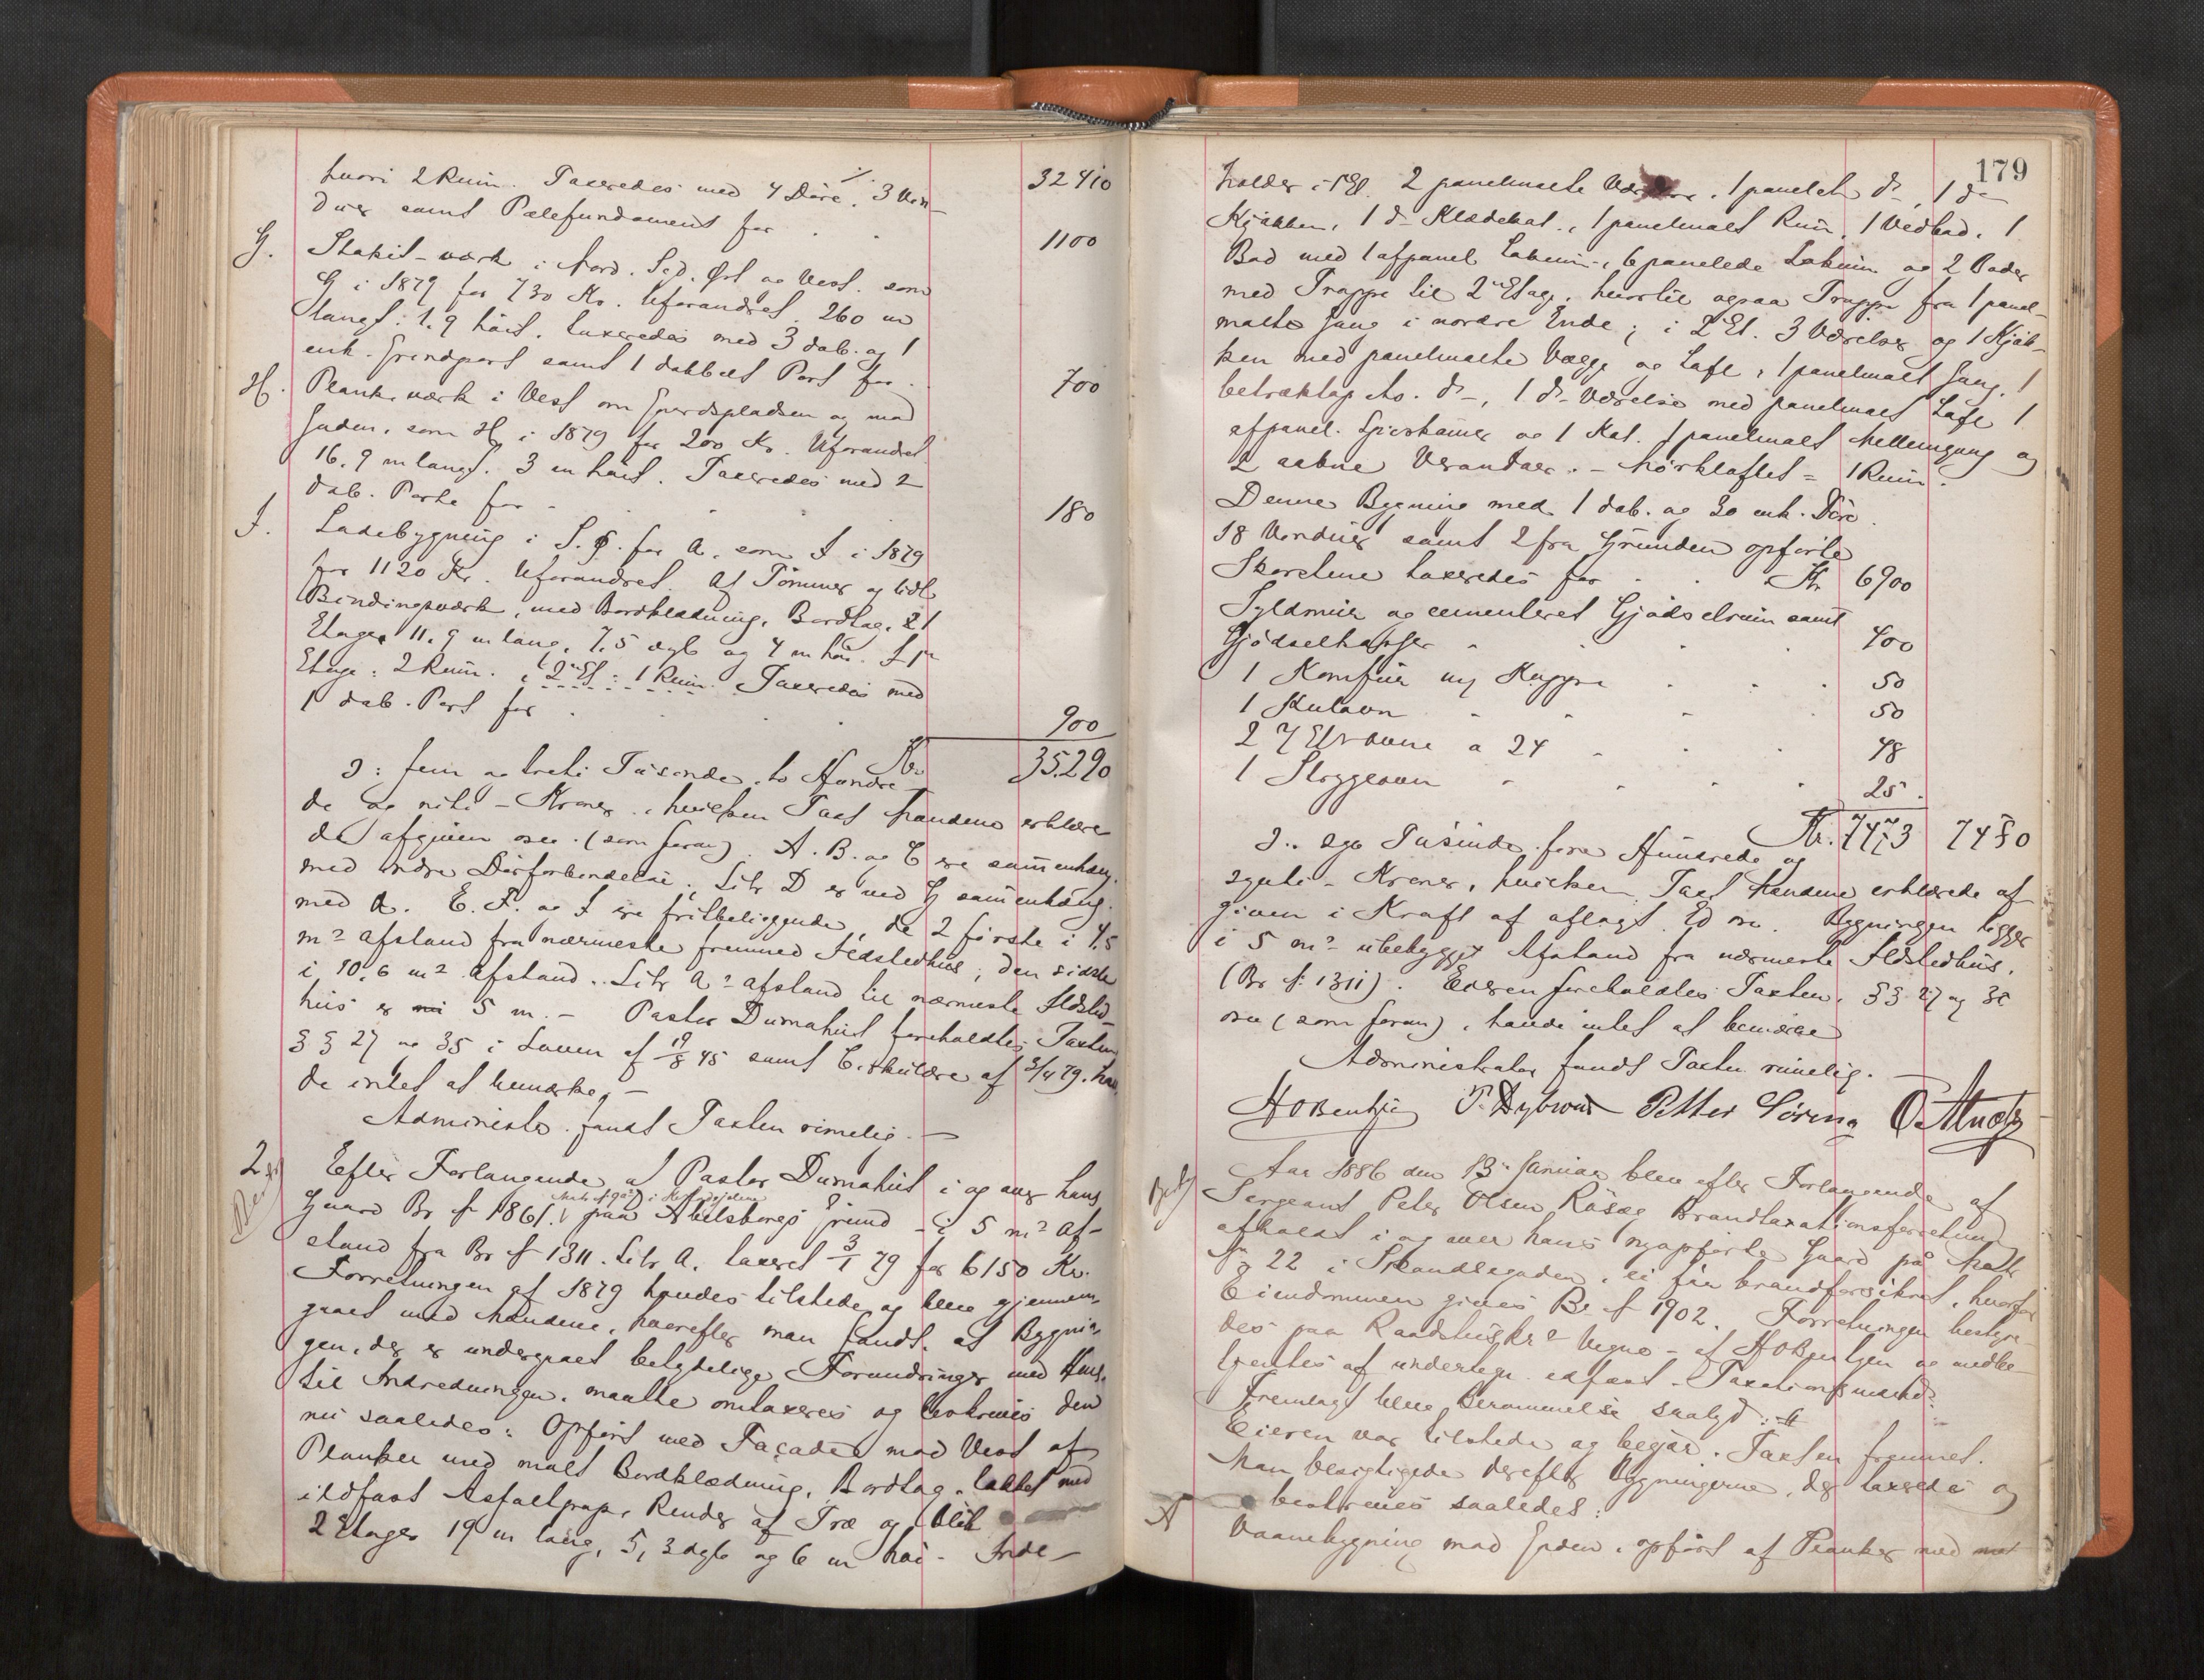 hvori 2 Rum. Taxeredes med 4 Döre, 3 Vin- 32410
duer samt Pælefundament for . . 1100
G. Stakit-værk i Nord. Syd. Øst og Vest. som
G i 1879 for 730 Kr. Uforandret. 260 m
langt. 1.9 höit. taxeredes med 3 dob. og 1
enk. Grindport samt 1 dobbelt Port for . 700
H. Plankeværk i Vest om Gaardspladsen og mod
Gaden, som H i 1879 for 200 Kr. Uforandret.
16.9 m langt. 3 m höit. Taxeredes med 2
dob. Porte for . . . 180
I. Ladebygning i S.Ø. for A. som I i 1879
for 1120 Kr. Uforandret. Af Tömmer og lidt
Bindingsværk, med Bordklædning, Bordtag, 2
Etager 11.9 m lang, 7.5 dyb og 4 m höi. I 1ste
Etage: 2 Rum. i 2den Et: 1 Rum. Taxeredes med
1 dob. Port for . . . 900
Kr. 35.290
ɔ: fem og treti Tusinde, to Hundre-
de og niti - Kroner, hvilken Taxt Mændene erklære-
de afgiven osv. (som foran). A. B. og C ere sammenhæng.
med indre Dörforbindelse. Litr D er ved G sammenhæng.
med A. E. F. og I ere fritbeliggende, de 2 förste i 4.5
m² afstand fra nærmeste fremmed Ildstedhus, den sidste
i 10.6 m² afstand. Litr A's afstand til nærmeste Ildsted-
hus er 5 m. - Pastor Dumahut foreholdtes Taxten
§§ 27 og 35 i Loven af 19/8 45 samt Cirkulære af 3/4 79. hav-
de intet at bemærke. -
Administr. fandt Taxten rimelig. -
2. Efter Forlangende af Pastor Dumahut i og over hans
Gaard Br № 1861. paa Abelsborgs Grund - i 5 m² af-
stand fra Br № 1311. Litr A. taxeret 3/1 79 for 6150 Kr.
Forretningen af 1879 havdes tilstede og blev gjennem-
gaaet med Mændene, hvorefter man fandt, at Bygnin-
gen, der er undergaaet betydelige Forandringer med Hens.
til Indredningen, maatte omtaxeres og beskrives den
nu saaledes: Opfört med Façade mod Vest af
Planker med malt Bordklædning, Bordtag, lakket med
ildfast Asfaltpap, Render af Træ og Blik
2 Etager 19 m lang, 5,3 dyb og 6 m höi - Inde-
179
holder i 1 Et. 2 panelmalte Værelser, 1 panelet do, 1 do
Kjökken, 1 do Klædekot, 1 panelmalt Rum, 1 Vedbod, 1
Bod med 1 afpanel. Lokum, 6 panelede Lokum og 2 Boder
med Trappe til 2den Etage, hvortil ogsaa Trappe fra 1 panel-
malte Gang i nordre Ende; i 2 Et. 3 Værelser og 1 Kjök-
ken med panelmalte Vægge og Loft, 1 panelmalt Gang, 1
betræktap do -, 1 do Værelse med panelmalt Loft 1
afpanel. Spiskammer og 1 Kot. 1 panelmalt Mellemgang og
2 aabne Verandaer. - Mörkloftet = 1 Rum.
Denne Bygning med 1 dob. og 30 enk. Döre
18 Vinduer samt 2 fra Grunden opförte
Skorstene taxeredes for . . Kr 6900
Syldmur og cementeret Gjödselrum samt
Gjödselkasser . . . . 400
1 Komfur ny Kappe . . . 50
1 Kulovn . . . . 50
2 2 Et Ovne a 24 . . . 48
1 Strygeovn . . . . 25.
Kr. 7473 7480
ɔ: syv Tusinde fire Hundrede og
sytti - Kroner, hvilken Taxt Mændene erklærede af-
given i Kraft af aflagt Ed osv. Bygningen ligger
i 5 m² ubebygget Afstand fra nærmeste Ildstedhus.
(Br №: 1311). Eieren foreholdtes Taxten, §§ 27 og 35
osv (som foran), havde intet at bemærke
Administrator fandt Taxten rimelig. -
HOBentzen P. Dybwad Petter Sörung O. Alnæs
Aar 1886 den 13de Januar blev efter Forlangende af
Sergeant Peter Olsen Röseg Brandtaxationsforretning
afholdt i og over hans nyopförte Gaard på Matr
№ 22 i Strandegaden, ei för brandforsikret, hvorfor
Eiendommen gives Br № 1902. Forretningen bestyre-
des paa Raadstuskr's Vegne - af HOBentzen og medbe-
tjentes af undertegn. edfæst. Taxationsmænd.
Fremlagt blev Berammelse saalyd:
Eieren var tilstede og begjær. Taxten fremmet.
Man besigtigede derefter Bygningerne, der taxeredes og
beskrives saaledes:
A Vaanebygning mod Gaden, opfört af Planker med